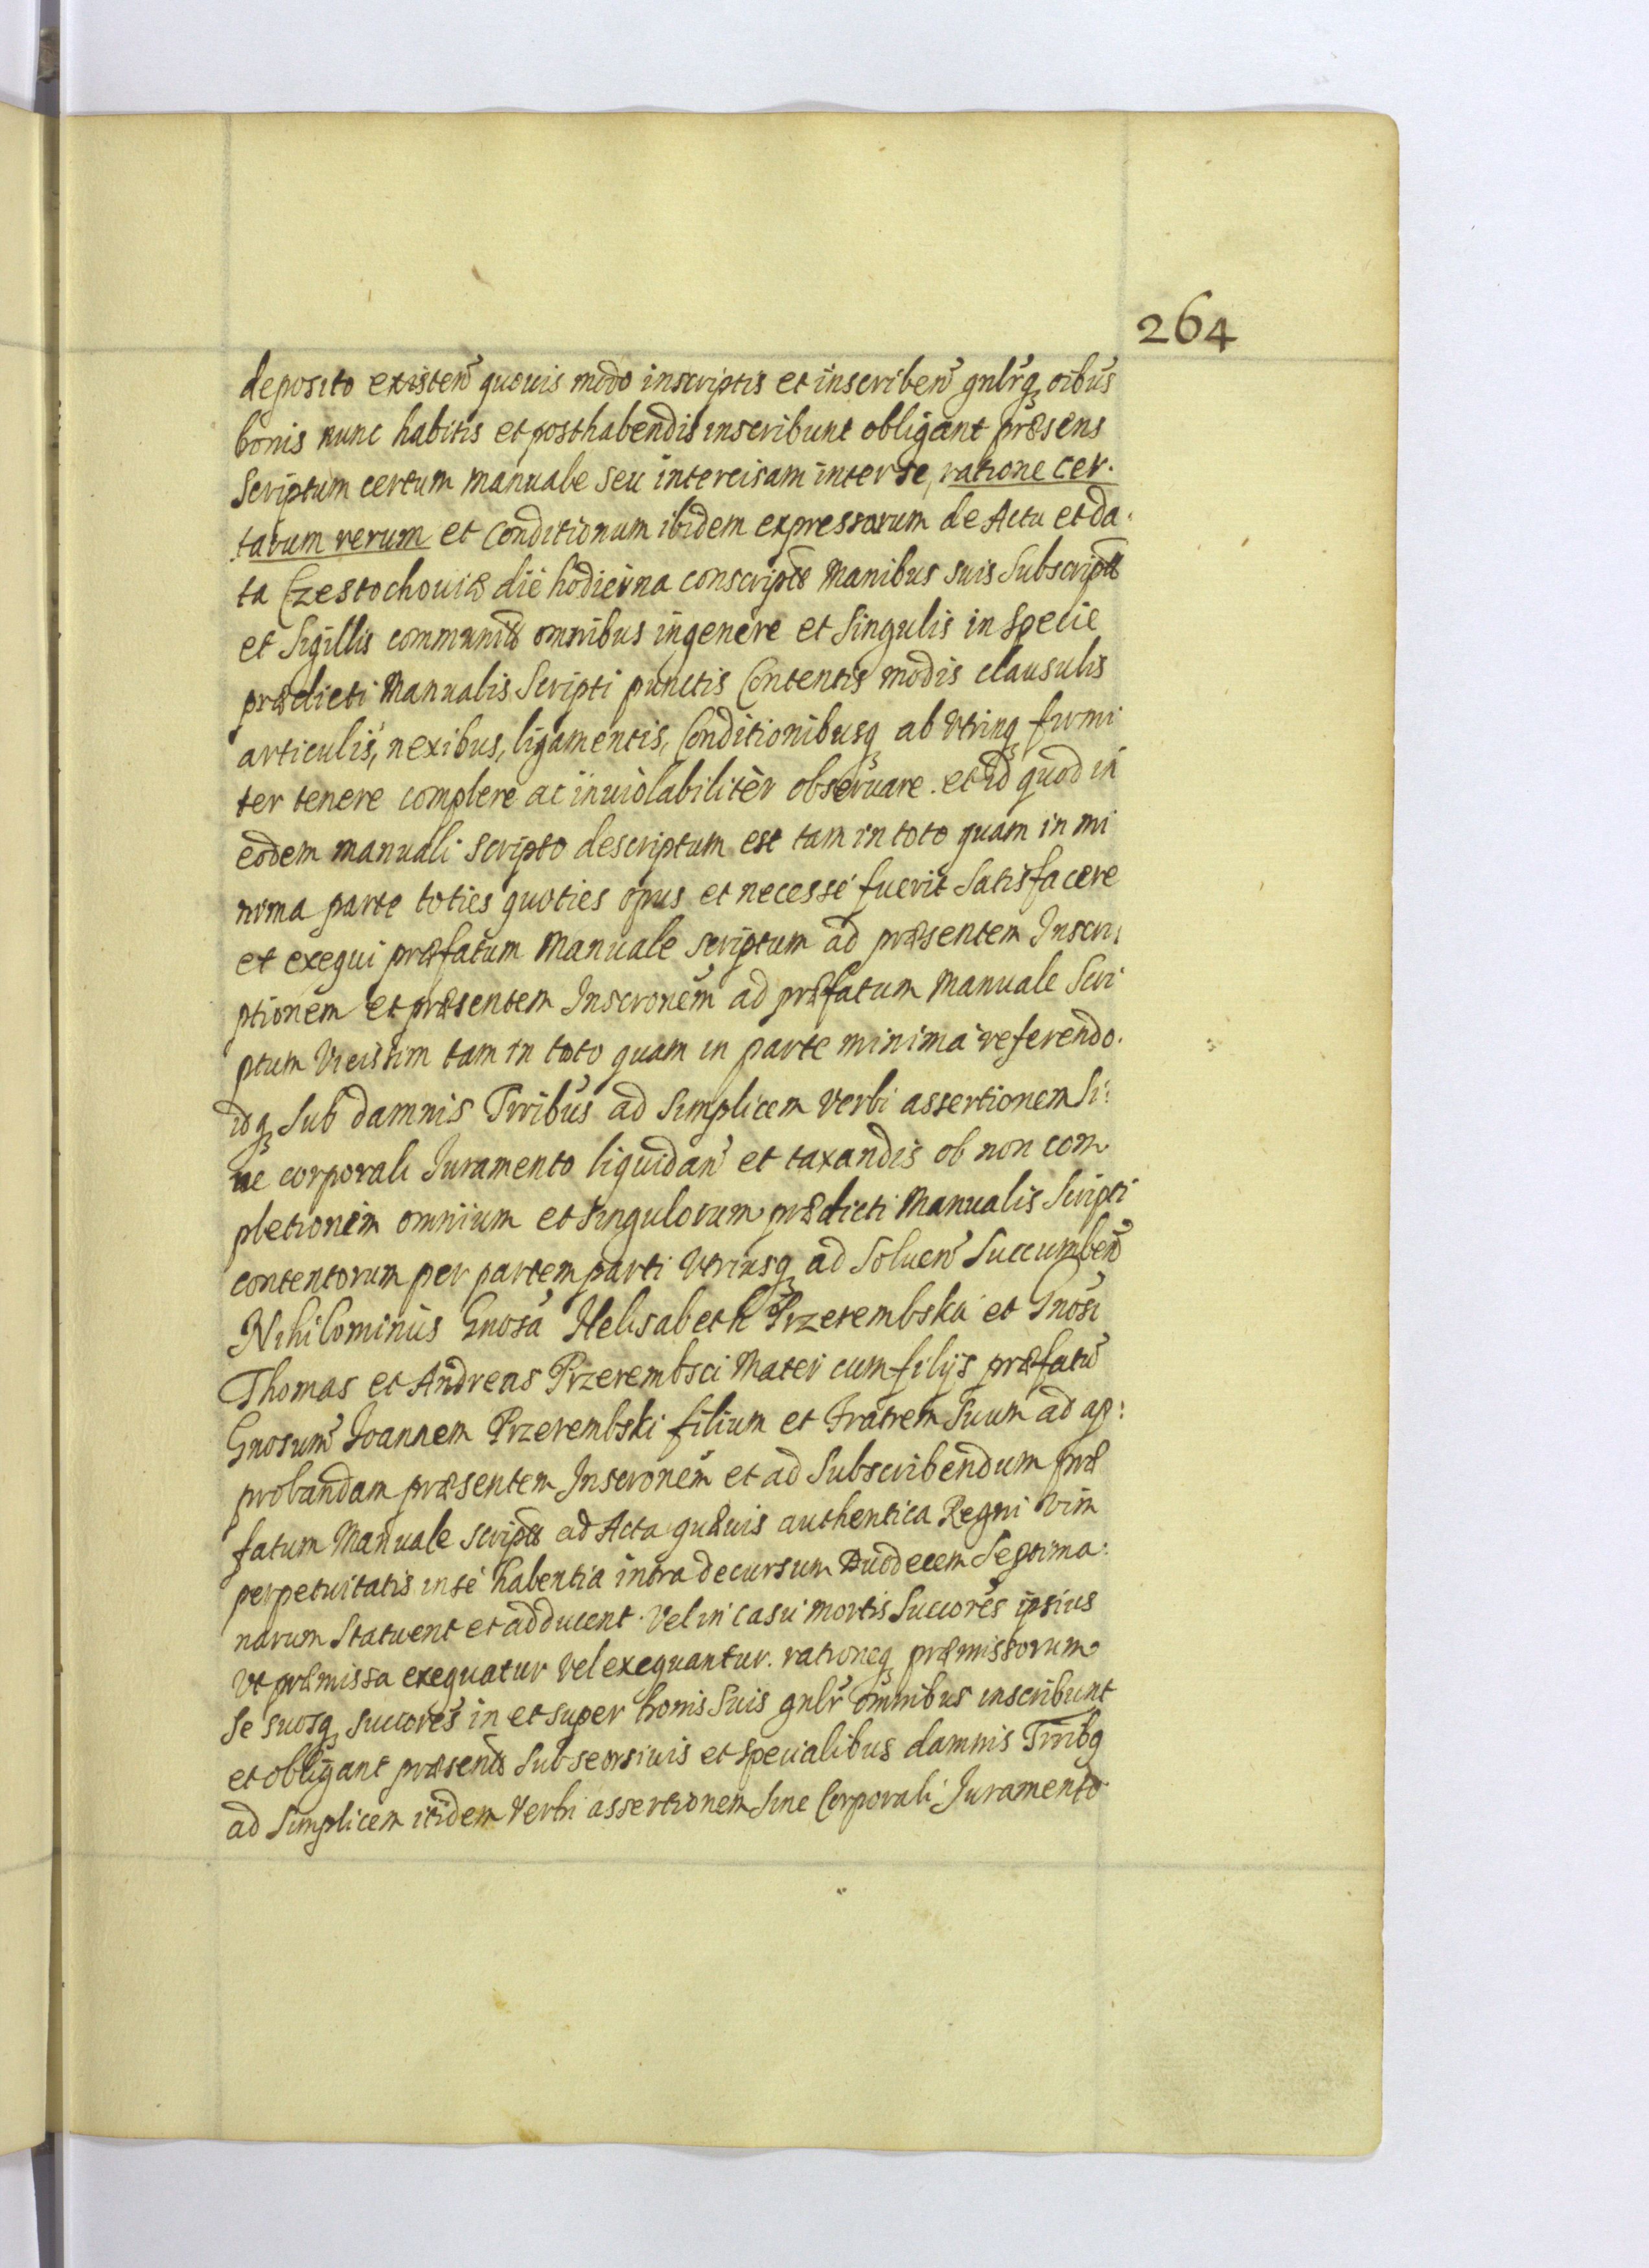 264
deposito existen̄ quouis modo inscriptis et inscriben̄ gnlrq̨ oibus
bonis nunc habitis et posthabendis inscribunt obligant præsens
Scriptum certum manuale seu intercisam inter se, ratione cer.
tarum rerum et Conditionum ibidem expressarum de Actu et da.
ta Czestochouiæ die hodierna conscript̄ Manibus suis Subscript̄
et Sigillis communit̄ omnibus in genere et Singulis in Specie
prædicti Manualis Scripti punctis Contentis modis clausulis
articulis, nexibus, ligamentis, Conditionibusq̨ ab Vtrinq̨ firmi
ter tenere complere ac inuiolabiliter obseruare. et id quod in
eodem manuali scripto descriptum est tam in toto quam in mi
nima parte toties quoties opus et necesse fuerit Satisfacere
et exequi præfatum Manuale scriptum ad præsentem Inscri
ptionem et præsentem Inscronem ad præfatum Manuale Scri
ptum Vicissim tam in toto quam in parte minima referendo.
idq̨ Sub damnis Trribus ad Simplicem Verbi assertionem Si:
ne corporali Iuramento liquidan̄ et taxandis ob non com
pletionem omnium et Singulorum prædicti Manualis Scripti
contentorum per partem parti Vtriusq̨ ad Soluen̄ Succumben̄
Nihilominus Gnosa Helisabeth Przerembska et Gnosi
Thomas et Andreas Przerembsci Mater cum filijs præfatū
Gnosum̄ Joannem Przerembski filium et Fratrem Suum ad ap:
probandam præsentem Inscronem et ad Subscribendum præ
fatum Manuale script̄ ad Acta quæuis authentica Regni vim
perpetuitatis in se habentia intra decursum Duodecem Septima:
narum Statuent et adducent. Vel in casu mortis Succores ipsius
Vt præmissa exequatur Vel exequantur. rationeq̨ præmissorum
Se suosq̨ succores in et super bonis Suis gnlr omnibus inscribunt
et obligant præsent̄ Sub seorsiuis et Specialibus damnis Trribq̨
ad Simplicem itidem Verbi assertionem Sine Corporali Iuramento